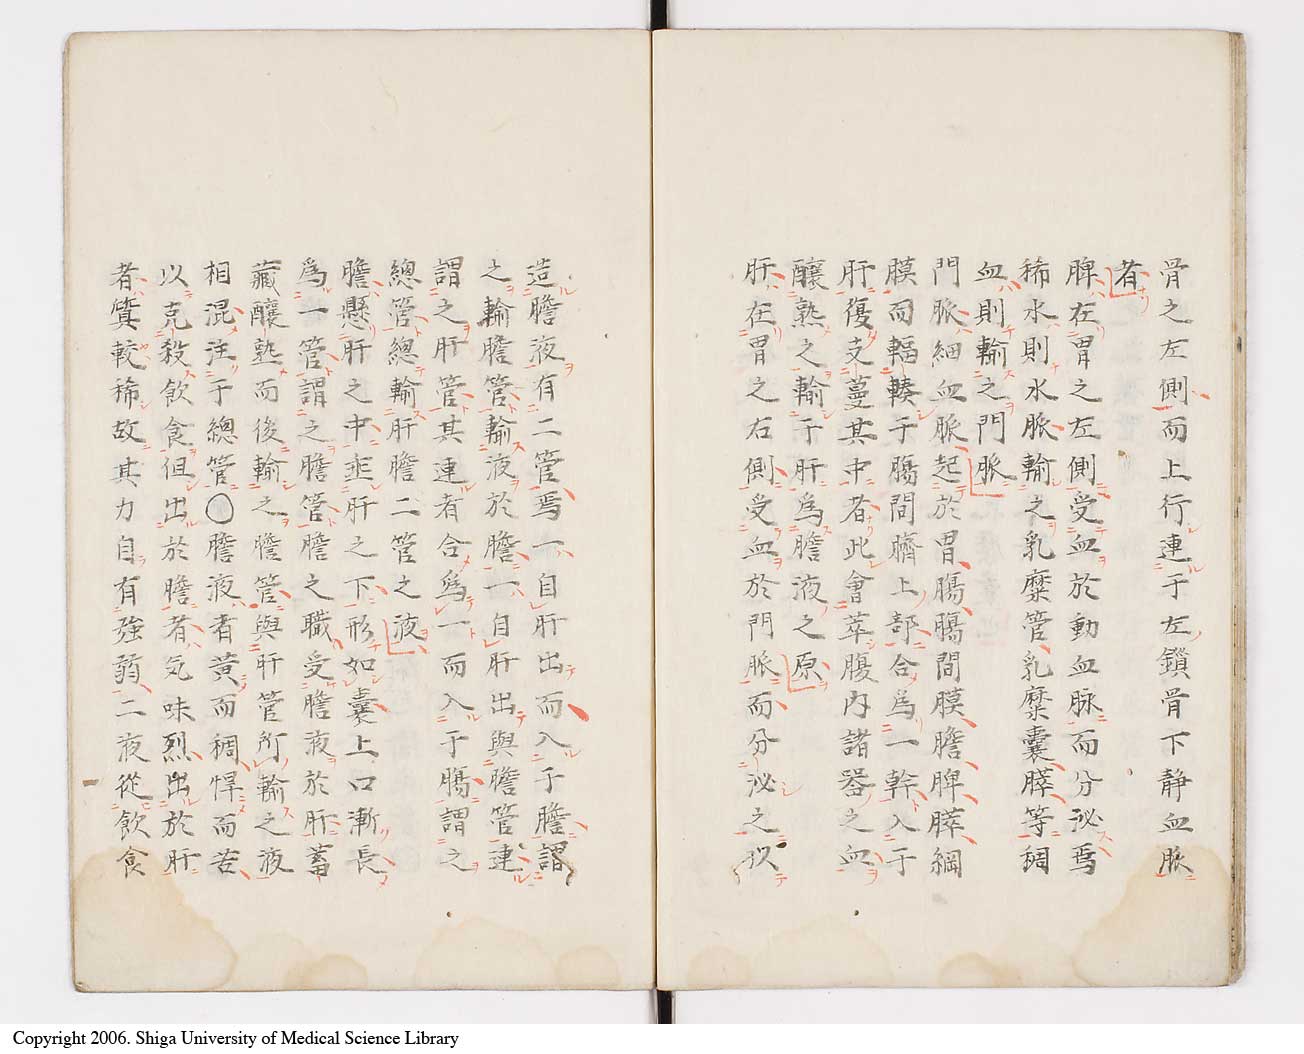 骨之左側而上行連于左鎖骨下靜血脈
者
脾在胃之左側受血於動血脉而分泌焉
稀水則水脈輸之乳糜管乳糜囊膵等稠
血則輸之門脈
門脈細血脈起於胃腸腸間膜膽脾膵網
膜而輻輳于腸間臍上部合爲一幹入于
肝復支蔓其中者此會萃腹内諸器之血
釀熟之輸于肝爲膽液之原
肝在胃之右側受血於門脈而分泌之以
造膽液有二管焉一自肝出而入于膽謂
之輸膽管輸液於膽一自肝出與膽管連
謂之肝管其連者合爲一而入于腸謂之
總管總輸肝膽二管之液
膽懸肝之中埀肝之下形如囊上口漸長
爲一管謂之膽管膽之職受膽液於肝蓄
藏釀熟而後輸之膽管與肝管所輸之液
相混注于總管○膽液者黄而稠悍而苦
以克殺飲食但出於膽者気味烈出於肝
者質較稀故其力自有強弱二液從飲食
Copyright 2006. Shiga University of Medical Science Library